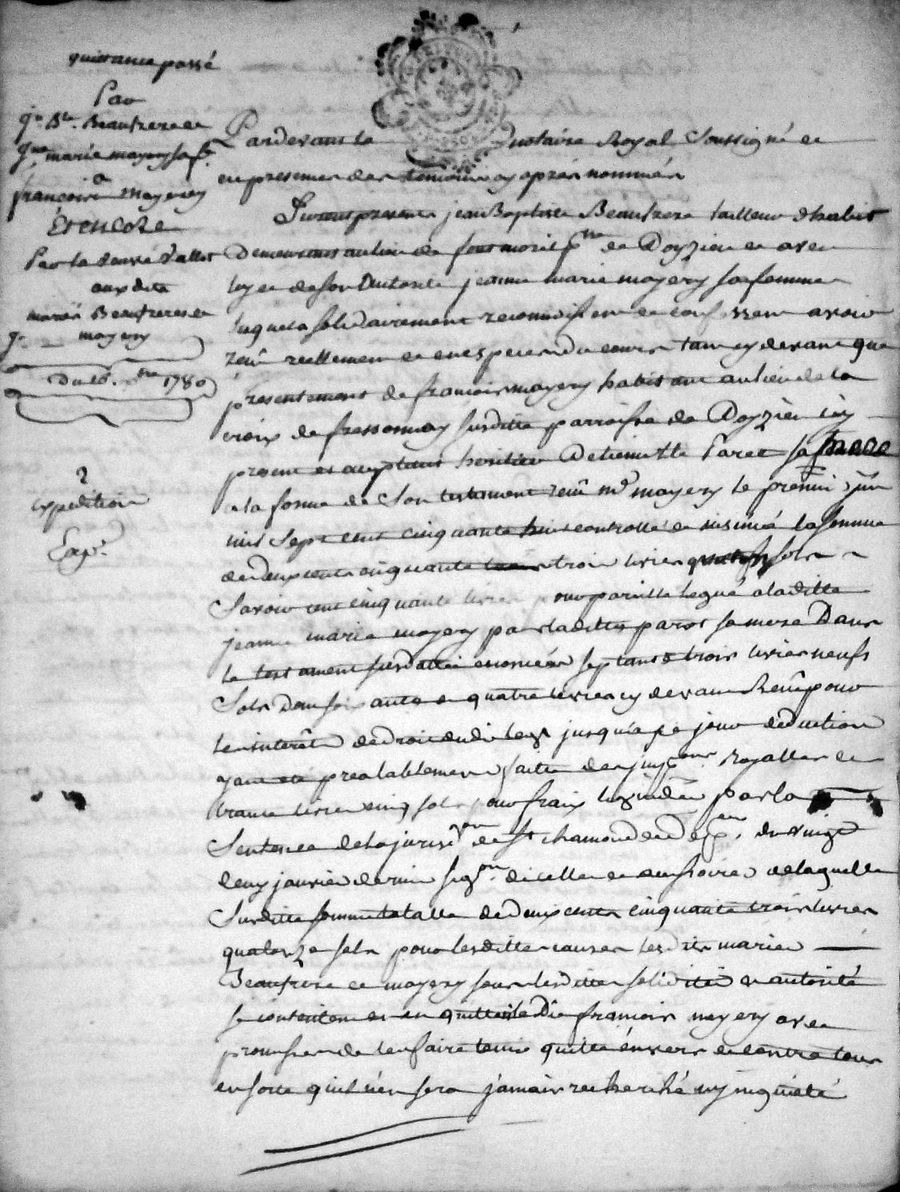 quittance passé
Par
Jn Bte Beaufrere et
Jne marie mayery sa fe
a
françois Mayery
Et encore
Par la
auxdits
mariés Beaufrere et
mayery
Du 16. 1780
2
expedition
Exp.
Pardevant le notaire Royal Soussigné et
en presence des temoins cy après nommés
Furent presents jean Baptiste Beaufrere tailleur d'habits
Demeurant au lieu de psse de Doyzieu et avec
luy et de son autorité jeanne marie mayery sa femme
lequels solidairement reconnoissent et confessent avoir
reçu reellement et en especes du cours tant cy devant que
presentement de francois mayery habitant au lieu de la
croix de fressonnay susditte parroisse de Doyzieu icy
present et acceptant heritier D'etiennette Paret sa
a la forme de Son testament reçu Me mayery le premier juin
mil Sept cent cinquante huit controllé et insinué la Somme
de deux cents cinquante trois livres sols
Savoir cent cinquante livres pour pareille legué a laditte
jeanne marie mayery par laditte paret sa mere Dans
le testament susdatté enoncée septante trois livres neufs
Sols Dont soixante et quatre livres cy devant pour
les interêts de droit dudit legs jusqu'a ce jour deduction
ayant été prealablement faitte des Royalles et
trente livres cinq sols pour fraix par la
Sentence de la jurison de St chamond du vingt
deux janvier dernier sigon d'icelle et accessoires de laquelle
Susditte somme totalle de deux cents cinquante trois livres
quatorze sols pour lesdittes causes lesdits mariés
Beaufrere et mayery sous lesdittes solidité et autorité
se contentent et en quittent ledit francois mayery avec
promesse de l'en faire tenir quitte envers et contre tous
en sorte qu'il n'en sera jamais recherché ny inquieté